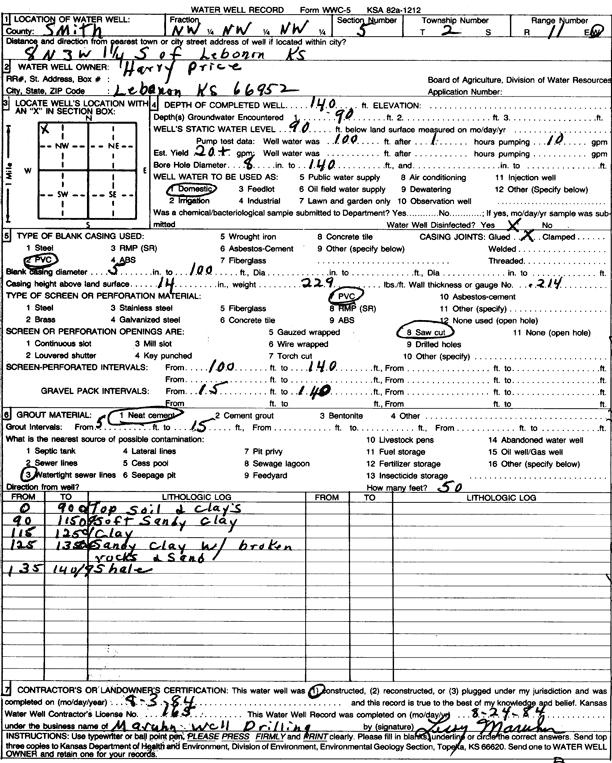 WATER WELL RECORD Form WWC-5 KSA 82a-1212
1 LOCATION OF WATER WELL: Fraction Section Number Township Number Range Number
County: Smith NW ¼ NW ¼ NW ¼ 5 T 2 S R 11 E/W
Distance and direction from nearest town or city street address of well if located within city?
8 N 3 W 1 1/4 S of Lebanon KS
2 WATER WELL OWNER: Harry Price
RR#, St. Address, Box # : Board of Agriculture, Division of Water Resources
City, State, ZIP Code : Lebanon KS 66952 Application Number:
3 LOCATE WELL'S LOCATION WITH AN "X" IN SECTION BOX:
N
X
NW NE
W E
SW SE
S
1 Mile
4 DEPTH OF COMPLETED WELL 140 ft. ELEVATION:
Depth(s) Groundwater Encountered 1. 90 ft. 2. ft. 3. ft.
WELL'S STATIC WATER LEVEL 90 ft. below land surface measured on mo/day/yr
Pump test data: Well water was 100 ft. after 1 hours pumping 10 gpm
Est. Yield 20+ gpm; Well water was ft. after hours pumping gpm
Bore Hole Diameter 8 in. to 140 ft., and in. to ft.
WELL WATER TO BE USED AS: 5 Public water supply 8 Air conditioning 11 Injection well
1 Domestic 3 Feedlot 6 Oil field water supply 9 Dewatering 12 Other (Specify below)
2 Irrigation 4 Industrial 7 Lawn and garden only 10 Observation well
Was a chemical/bacteriological sample submitted to Department? Yes No ; If yes, mo/day/yr sample was sub-
mitted Water Well Disinfected? Yes X No
5 TYPE OF BLANK CASING USED: 5 Wrought iron 8 Concrete tile CASING JOINTS: Glued X Clamped
1 Steel 3 RMP (SR) 6 Asbestos-Cement 9 Other (specify below) Welded
2 PVC 4 ABS 7 Fiberglass Threaded
Blank casing diameter 5 in. to 100 ft., Dia in. to ft., Dia in. to ft.
Casing height above land surface 14 in., weight 229 lbs./ft. Wall thickness or gauge No. .214
TYPE OF SCREEN OR PERFORATION MATERIAL: 7 PVC 10 Asbestos-cement
1 Steel 3 Stainless steel 5 Fiberglass 8 RMP (SR) 11 Other (specify)
2 Brass 4 Galvanized steel 6 Concrete tile 9 ABS 12 None used (open hole)
SCREEN OR PERFORATION OPENINGS ARE: 5 Gauzed wrapped 8 Saw cut 11 None (open hole)
1 Continuous slot 3 Mill slot 6 Wire wrapped 9 Drilled holes
2 Louvered shutter 4 Key punched 7 Torch cut 10 Other (specify)
SCREEN-PERFORATED INTERVALS: From 100 ft. to 140 ft., From ft. to ft.
From ft. to ft., From ft. to ft.
GRAVEL PACK INTERVALS: From 15 ft. to 140 ft., From ft. to ft.
From ft. to ft., From ft. to ft.
6 GROUT MATERIAL: 1 Neat cement 2 Cement grout 3 Bentonite 4 Other
Grout Intervals: From 5 ft. to 15 ft., From ft. to ft., From ft. to ft.
What is the nearest source of possible contamination: 10 Livestock pens 14 Abandoned water well
1 Septic tank 4 Lateral lines 7 Pit privy 11 Fuel storage 15 Oil well/Gas well
2 Sewer lines 5 Cess pool 8 Sewage lagoon 12 Fertilizer storage 16 Other (specify below)
3 Watertight sewer lines 6 Seepage pit 9 Feedyard 13 Insecticide storage
Direction from well? How many feet? 50
FROM TO LITHOLOGIC LOG FROM TO LITHOLOGIC LOG
0 90 Top Soil & Clay's
90 115 Soft Sandy Clay
115 125 Clay
125 135 Sandy Clay w/ broken
rocks & Sand
135 140 Shale
7 CONTRACTOR'S OR LANDOWNER'S CERTIFICATION: This water well was (1) constructed, (2) reconstructed, or (3) plugged under my jurisdiction and was
completed on (mo/day/year) 8-3-84 and this record is true to the best of my knowledge and belief. Kansas
Water Well Contractor's License No. 165 This Water Well Record was completed on (mo/day/yr) 8-24-84
under the business name of Maruhn Well Drilling by (signature) Maruhn
INSTRUCTIONS: Use typewriter or ball point pen, PLEASE PRESS FIRMLY and PRINT clearly. Please fill in blanks, underline or circle the correct answers. Send top
three copies to Kansas Department of Health and Environment, Division of Environment, Environmental Geology Section, Topeka, KS 66620. Send one to WATER WELL
OWNER and retain one for your records.